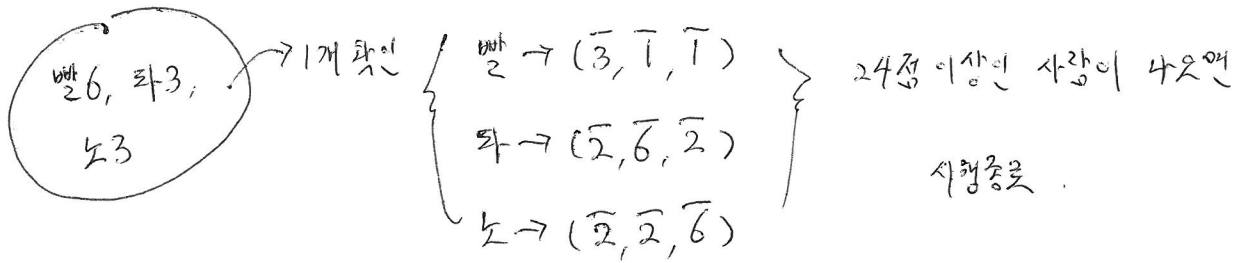 빨6, 파3,
노3
→ 1개 확인
빨 → (3, 1, 1)
파 → (2, 6, 2)
노 → (2, 2, 6)
24점 이상인 사람이 나오면
시행종료.